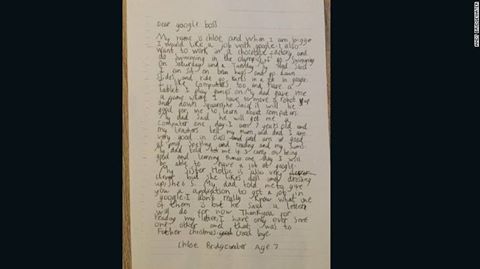 Dear google boss
My name is chloe and when I am bigger
I would like a job with google. I also
want to work in a chocolate factory and
do swimming in the olympics. I go swimming
on Saturday and a Wednesday. My dad said
I can sit on bean bags and go down
slides and ride go karts in a job in google.
I like computers too and have a
tablet I play games on. My dad gave me
a game where I have to move a robot up
and down squares, he said it will be
good for me to learn about computers.
My dad said he will get me a
computer one day. I am 7 years old and
my teachers tell my mum and dad I am
very good in class and am good
at my spelling and reading and my sums.
My dad told me if I carry on being
good and learning then one day I will
be able to have a job at google.
My sister Hollie is also very
clever but she likes dolls and dressing
up, she is 5. My dad told me to give
you a application to get a job in
google. I don't really know what one
of them is but he said a letter
will do for now. Thank you for
reading my letter, I have only ever sent
one other and that was to
Father christmas. Good bye
Chloe Bridgewater Age 7
ANDY BRIDGEWATER